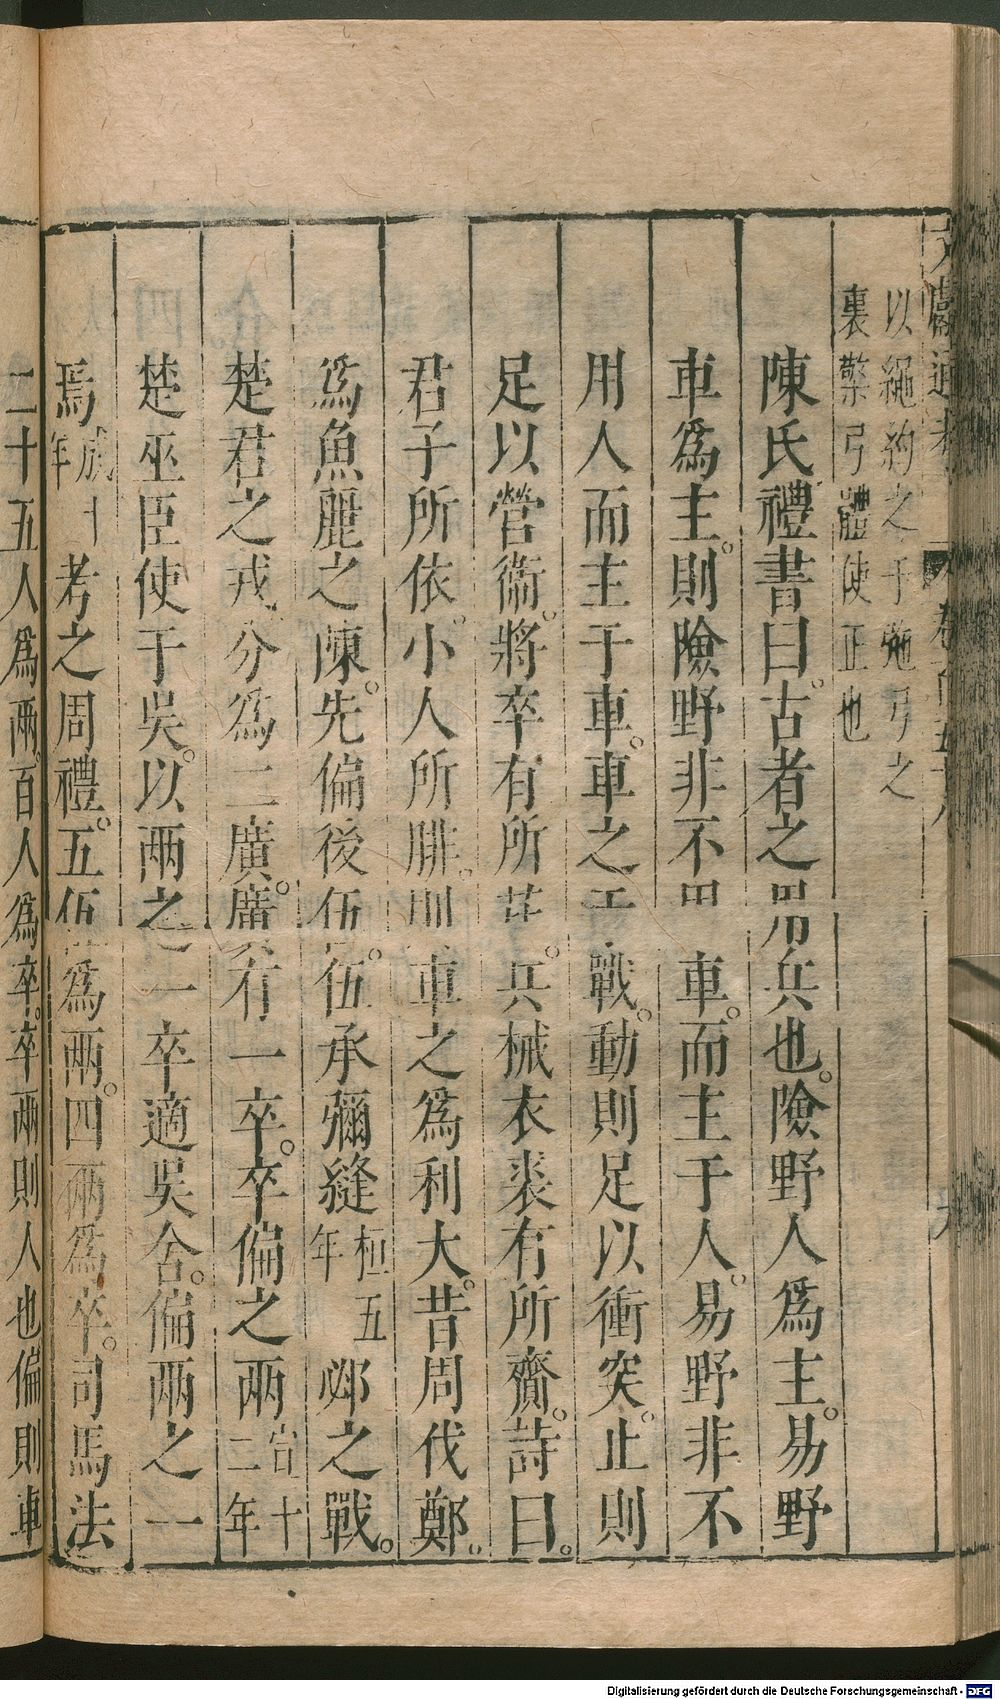 文獻通考 卷百五十八
以繩約之于弛弓之
裏檠弓體使正也
陳氏禮書曰。古者之用兵也。險野人爲主。易野
車爲主。則險野非不用車。而主于人。易野非不
用人而主于車。車之于戰。動則足以衝突。止則
足以營衞。將卒有所芘。兵械衣裘有所齎。詩曰。
君子所依。小人所腓。則車之爲利大。昔周伐鄭。
爲魚麗之陳。先偏後伍。伍承彌縫桓五年邲之戰。
楚君之戎。分爲二廣。廣有一卒。卒偏之兩宣十二年
楚巫臣使于吳。以兩之一卒適吳舍。偏兩之一
焉成十年考之周禮。五伍爲兩。四兩爲卒。司馬法
二十五人爲兩。百人爲卒。卒兩則人也偏則車
Digitalisierung gefördert durch die Deutsche Forschungsgemeinschaft - DFG